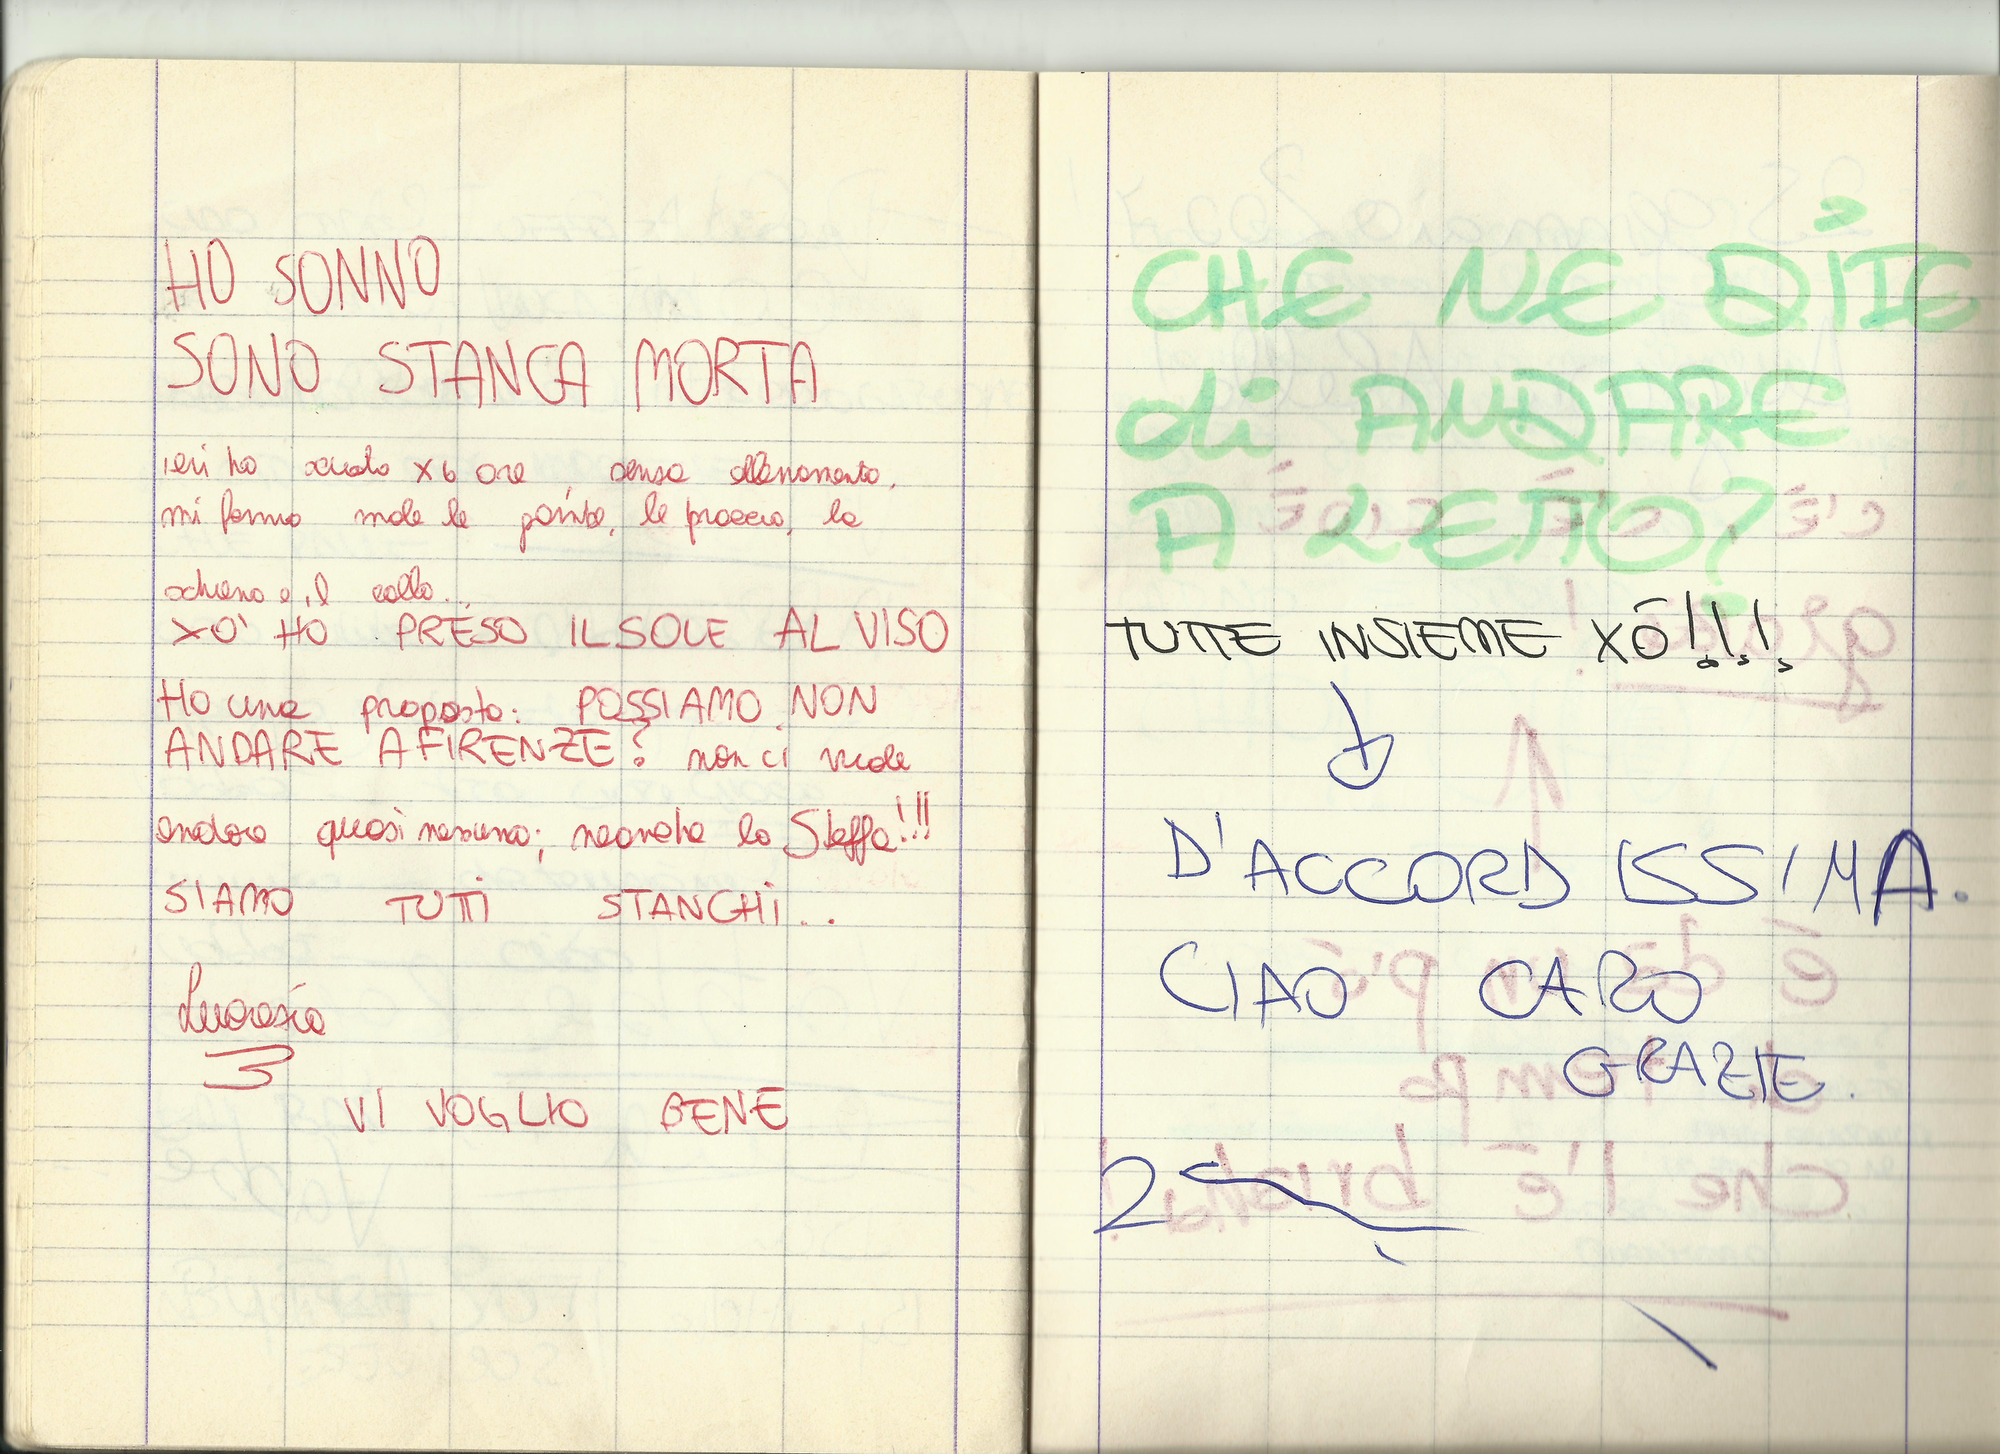 HO SONNO
SONO STANCA MORTA
ieri ho sciato x 6 ore, senza allenamento,
mi fanno male le gambe, le braccia, la
schiena e il collo...
XO' HO PRESO IL SOLE AL VISO
HO una proposta: POSSIAMO NON
ANDARE A FIRENZE? non ci vuole
andare quasi nessuno; neanche la Steffa!!!
SIAMO TUTTI STANCHI...
Lucrezia
VI VOGLIO BENE
CHE NE DITE
di ANDARE
A LETTO?
TUTTE INSIEME XÓ!!!!
D'ACCORDISSIMA.
CIAO CARO
GRAZIE.